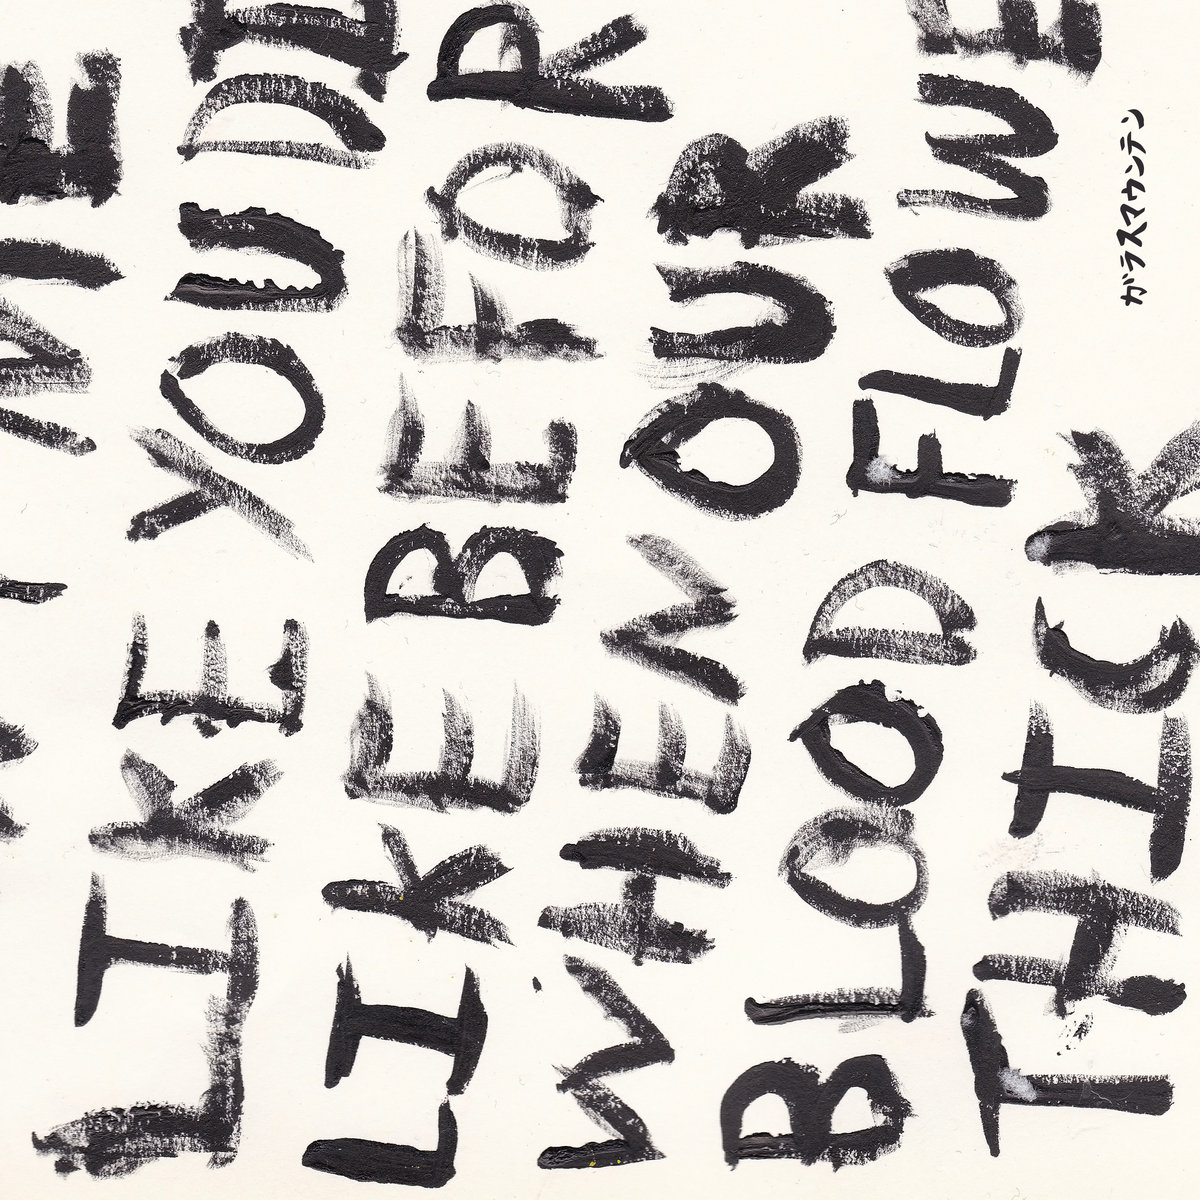 LIKE YOU DI
LIKE BEFOR
WHEN OUR
BLOOD FLOWE
THICK
ガラスマウンテン